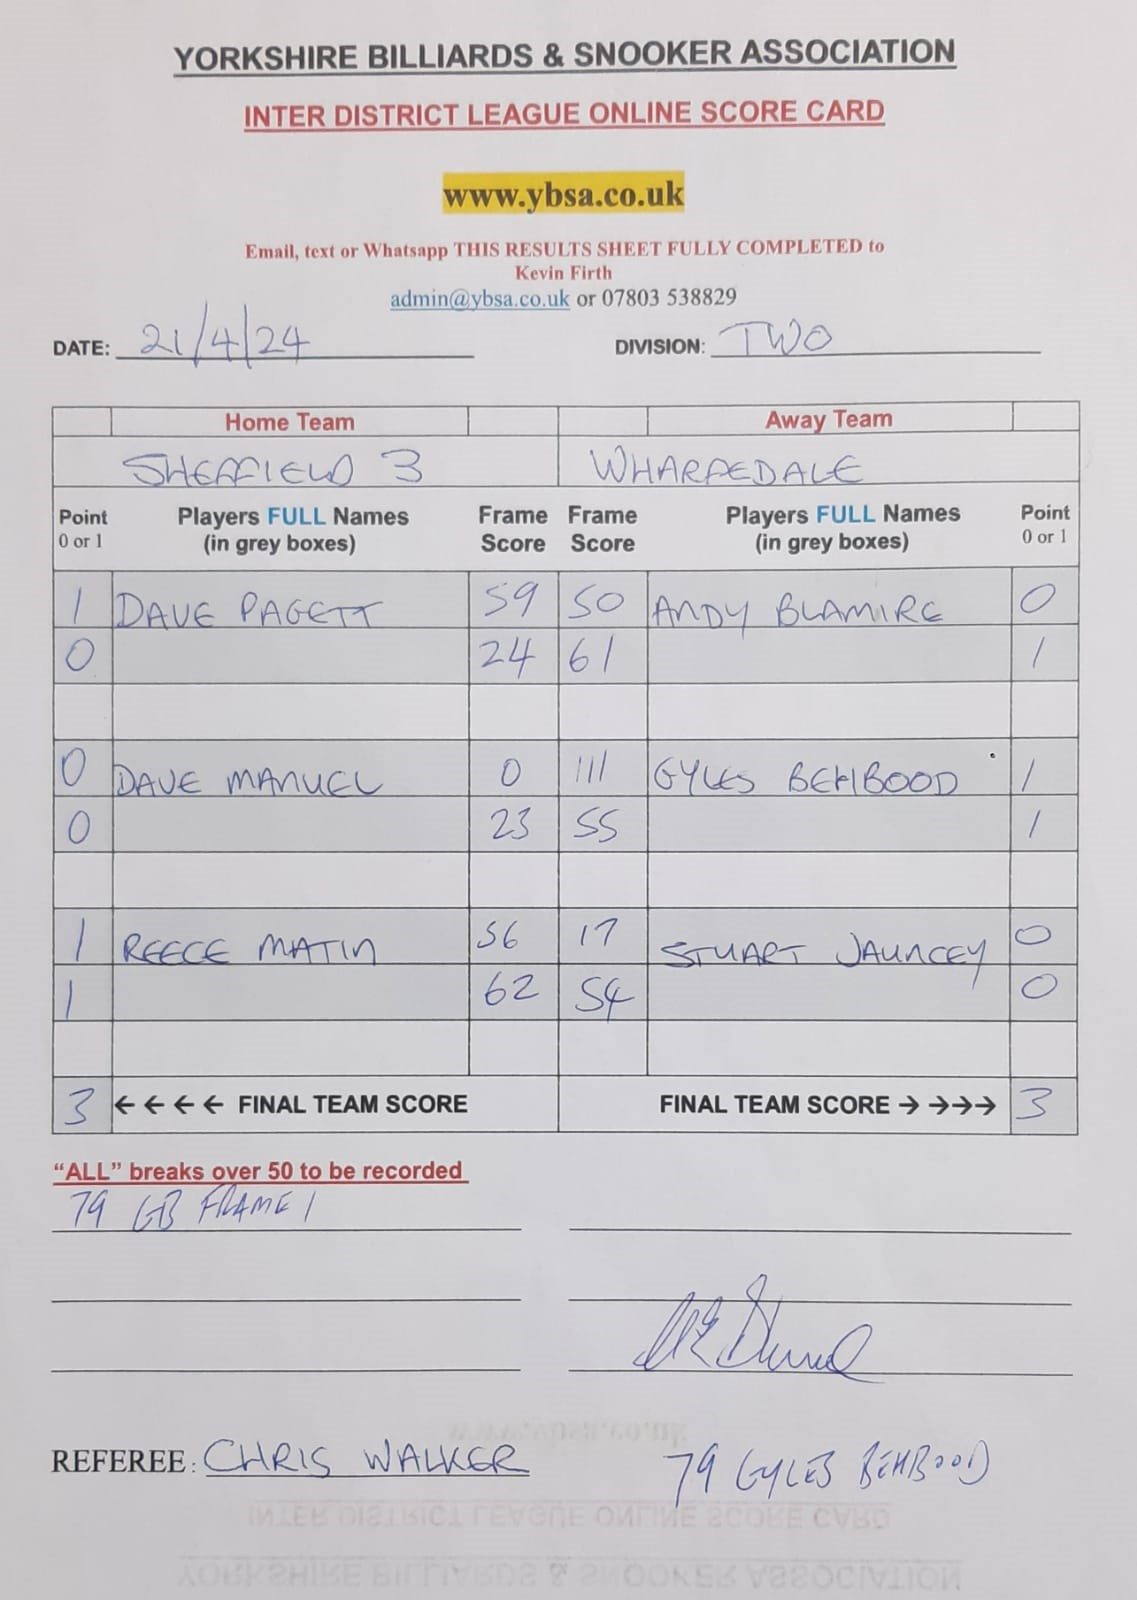 YORKSHIRE BILLIARDS & SNOOKER ASSOCIATION
INTER DISTRICT LEAGUE ONLINE SCORE CARD
www.ybsa.co.uk
Email, text or Whatsapp THIS RESULTS SHEET FULLY COMPLETED to
Kevin Firth
admin@ybsa.co.uk or 07803 538829
DATE: 21/4/24 DIVISION: TWO
Home Team Away Team
SHEFFIELD 3 WHARFEDALE
Point Players FULL Names Frame Frame Players FULL Names Point
0 or 1 (in grey boxes) Score Score (in grey boxes) 0 or 1
1 DAVE PAGETT 59 50 ANDY BLAMIRE 0
0 24 61 1
0 DAVE MANUEL 0 111 GYLES BEHBOOD 1
0 23 55 1
1 REECE MATIN 56 17 STUART JAUNCEY 0
1 62 54 0
3 ←←←← FINAL TEAM SCORE FINAL TEAM SCORE →→→→ 3
"ALL" breaks over 50 to be recorded
79 GB FRAME 1
REFEREE: CHRIS WALKER 79 GYLES BEHBOOD